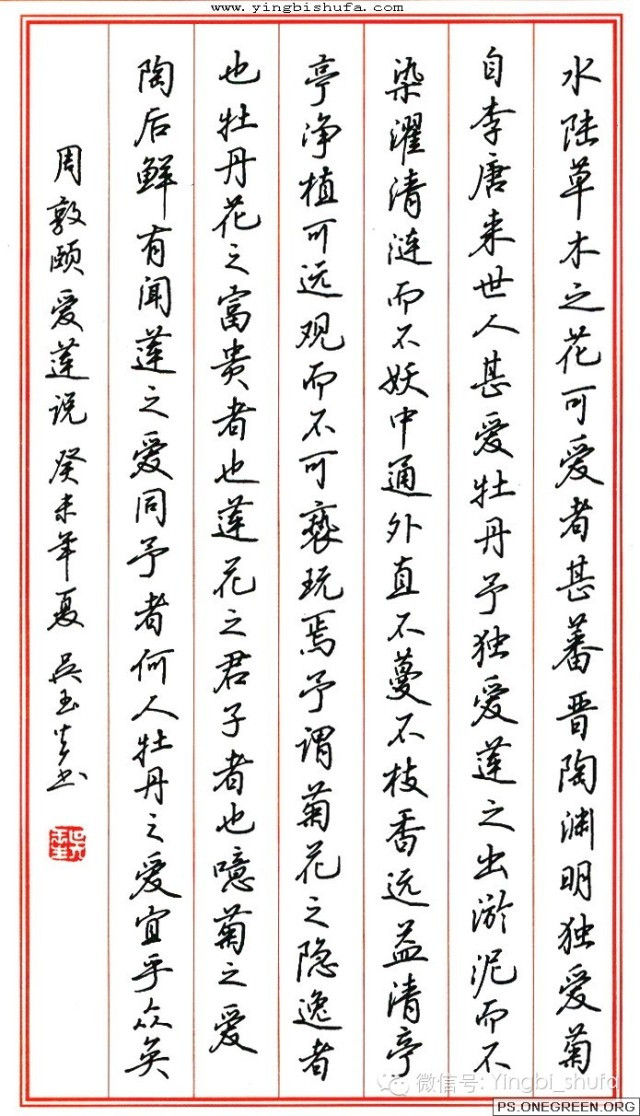 www.yingbishufa.com
水陆草木之花可爱者甚蕃晋陶渊明独爱菊
自李唐来世人甚爱牡丹予独爱莲之出淤泥而不
染濯清涟而不妖中通外直不蔓不枝香远益清亭
亭净植可远观而不可亵玩焉予谓菊花之隐逸者
也牡丹花之富贵者也莲花之君子者也噫菊之爱
陶后鲜有闻莲之爱同予者何人牡丹之爱宜乎众矣
周敦颐爱莲说 癸未年夏 吴玉生书
微信号: Yingbi_shufa
PS.ONEGREEN.ORG